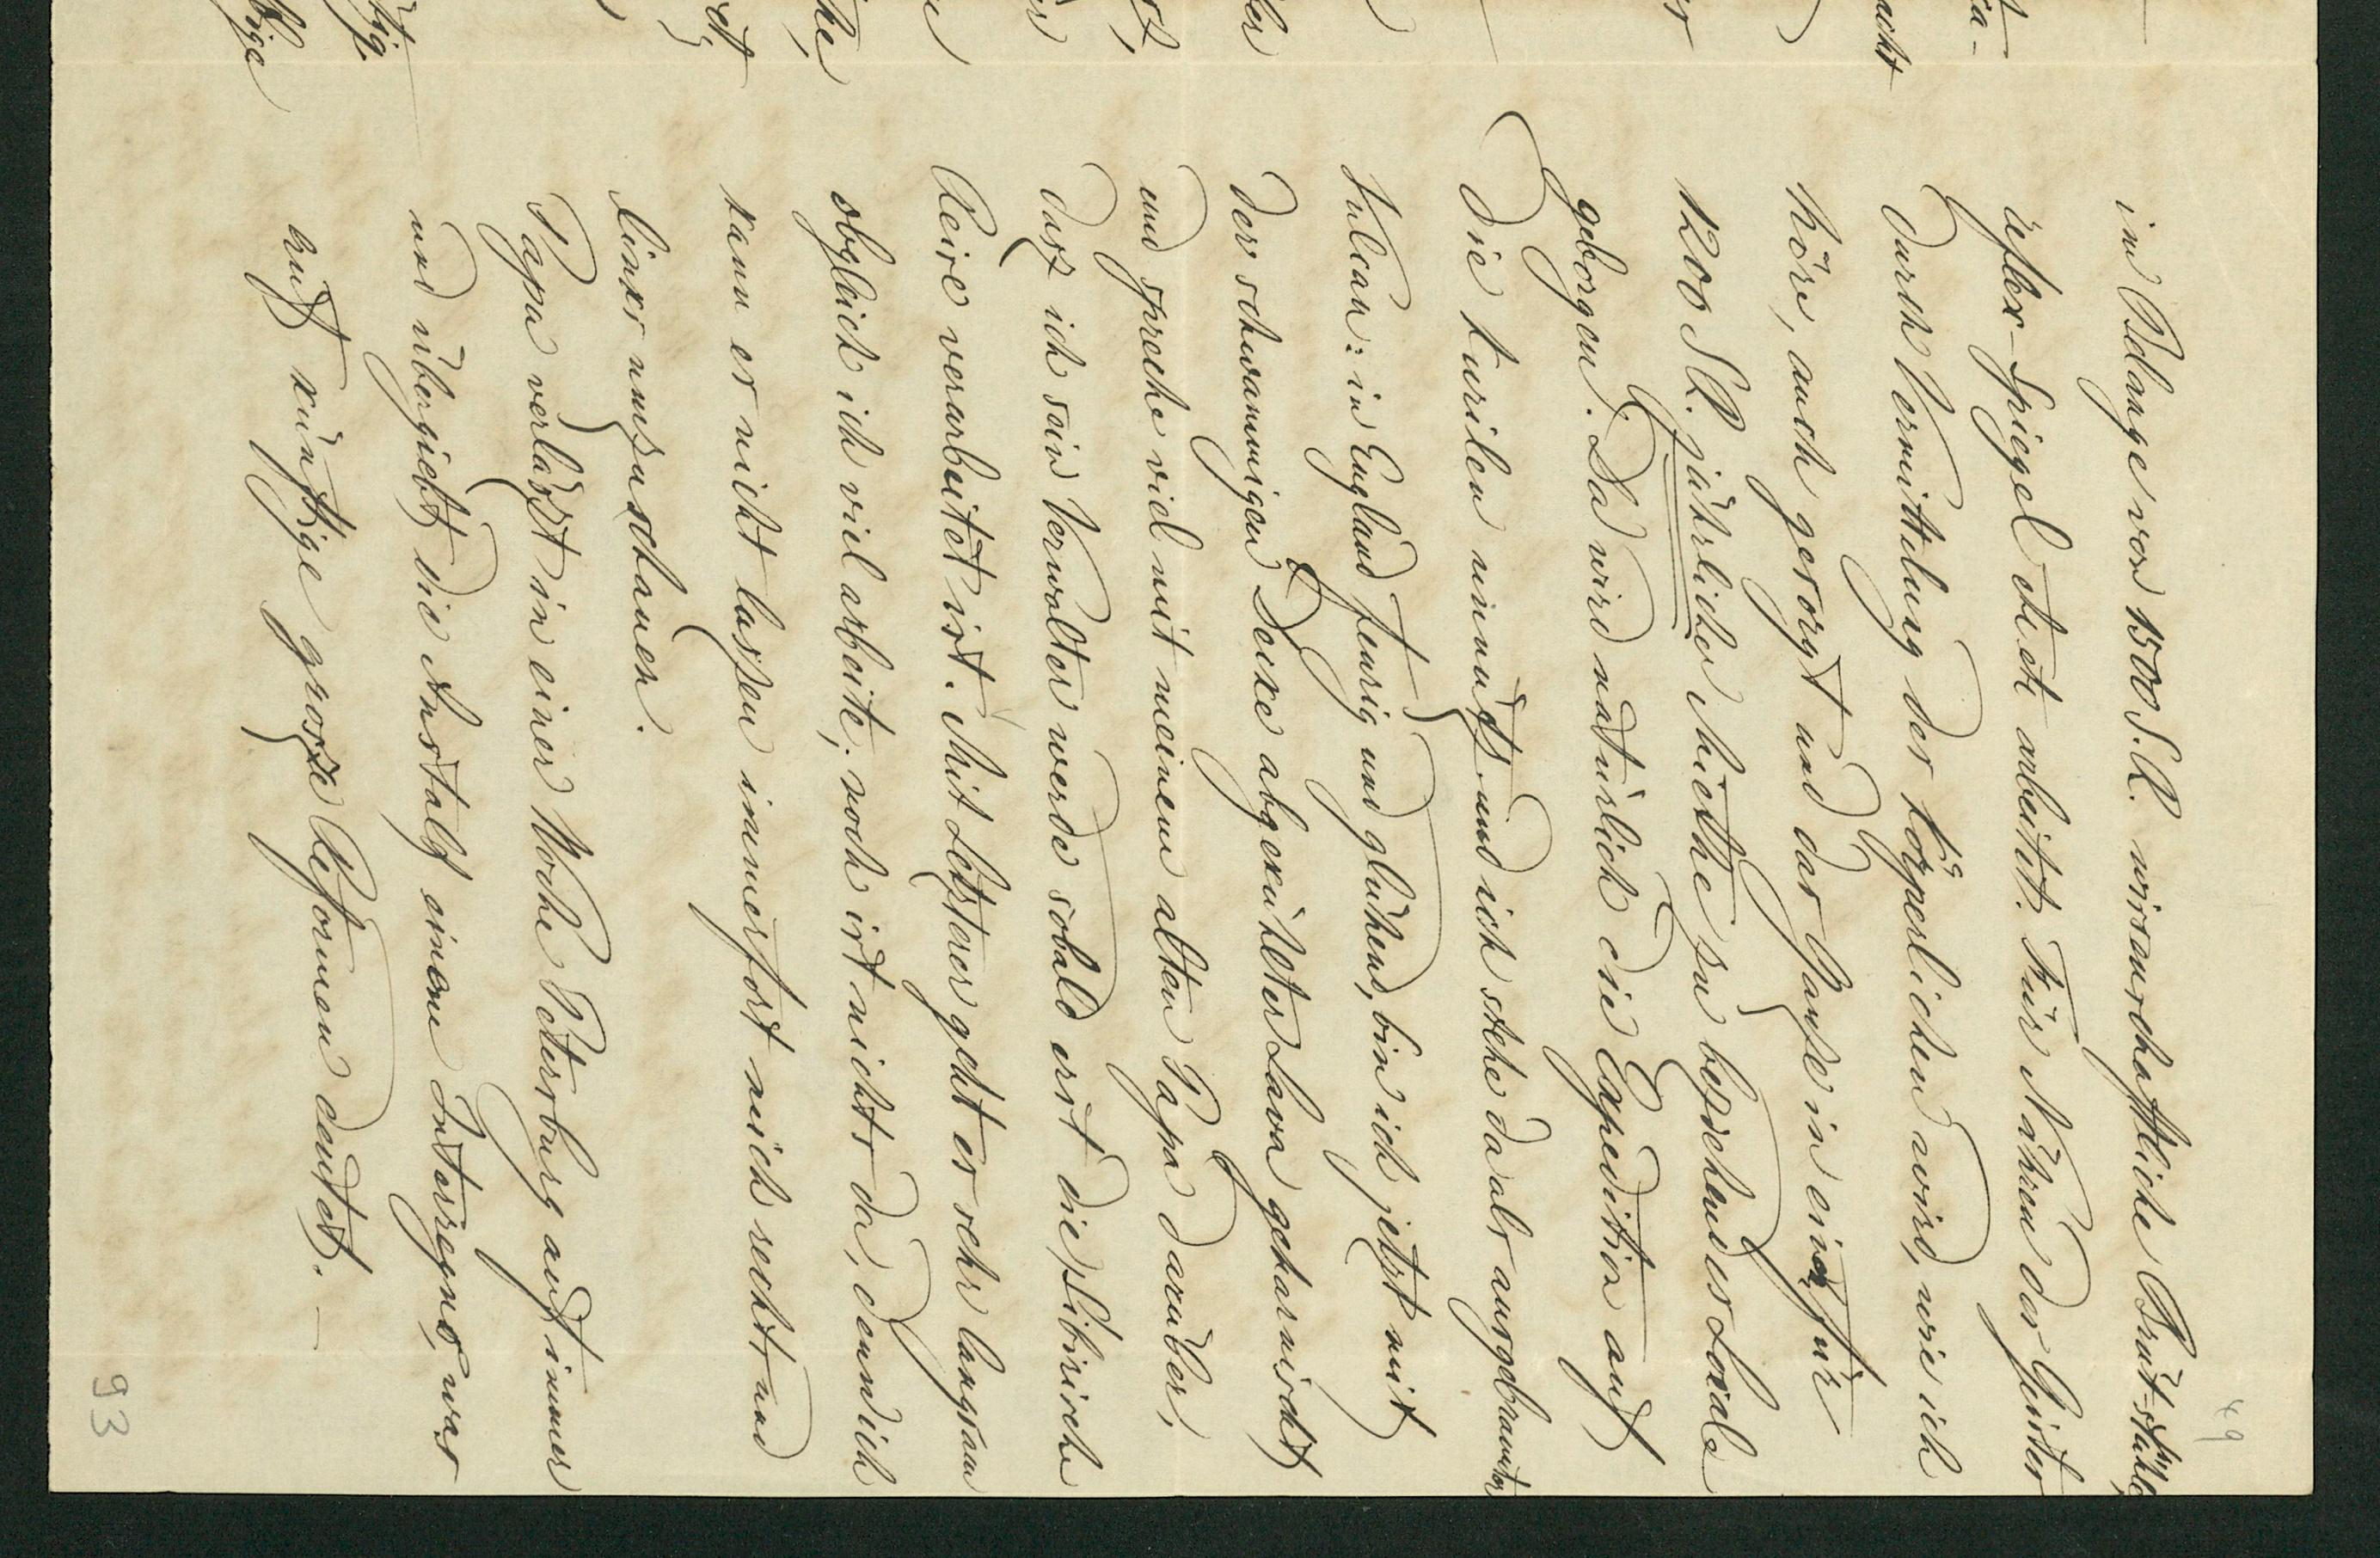 49
im Belange von 1500 S.R. wissenschaftliche Brüt-stühle,
reflex-Spiegel etc etc arbeitet. Für Nähren des Geistes
durch Vermittelung der körperlichen wird, wie ich
höre, auch gesorgt und das Ganze in einem für
1200 SR. jährlicher Miethe zu beziehendes Locale
geborgen. Da wird natürlich die Expedition auf
die Kurilen unnütz und ich stehe da als ausgebrannter
Vulcan: in England feurig und glühend, bin ich jetzt mit
der schwammigen Decke abgekühlter Lava geharnischt
und spreche viel mit meinem alten Papa darüber,
dasz ich sein Verwalter werde sobald erst die Sibirische
Reise verarbeitet ist. Mit Letzterer geht es sehr langsam
obgleich ich viel arbeite; noch ist nichts da, denn ich
kann es nicht lassen immerfort mich rechts und
links umzuschauen.
Papa verlässt in einer Woche Petersburg auf immer
und übergiebt die Anstalt einem Interregno, was
auf künftige grosze Reformen deutet. —
93